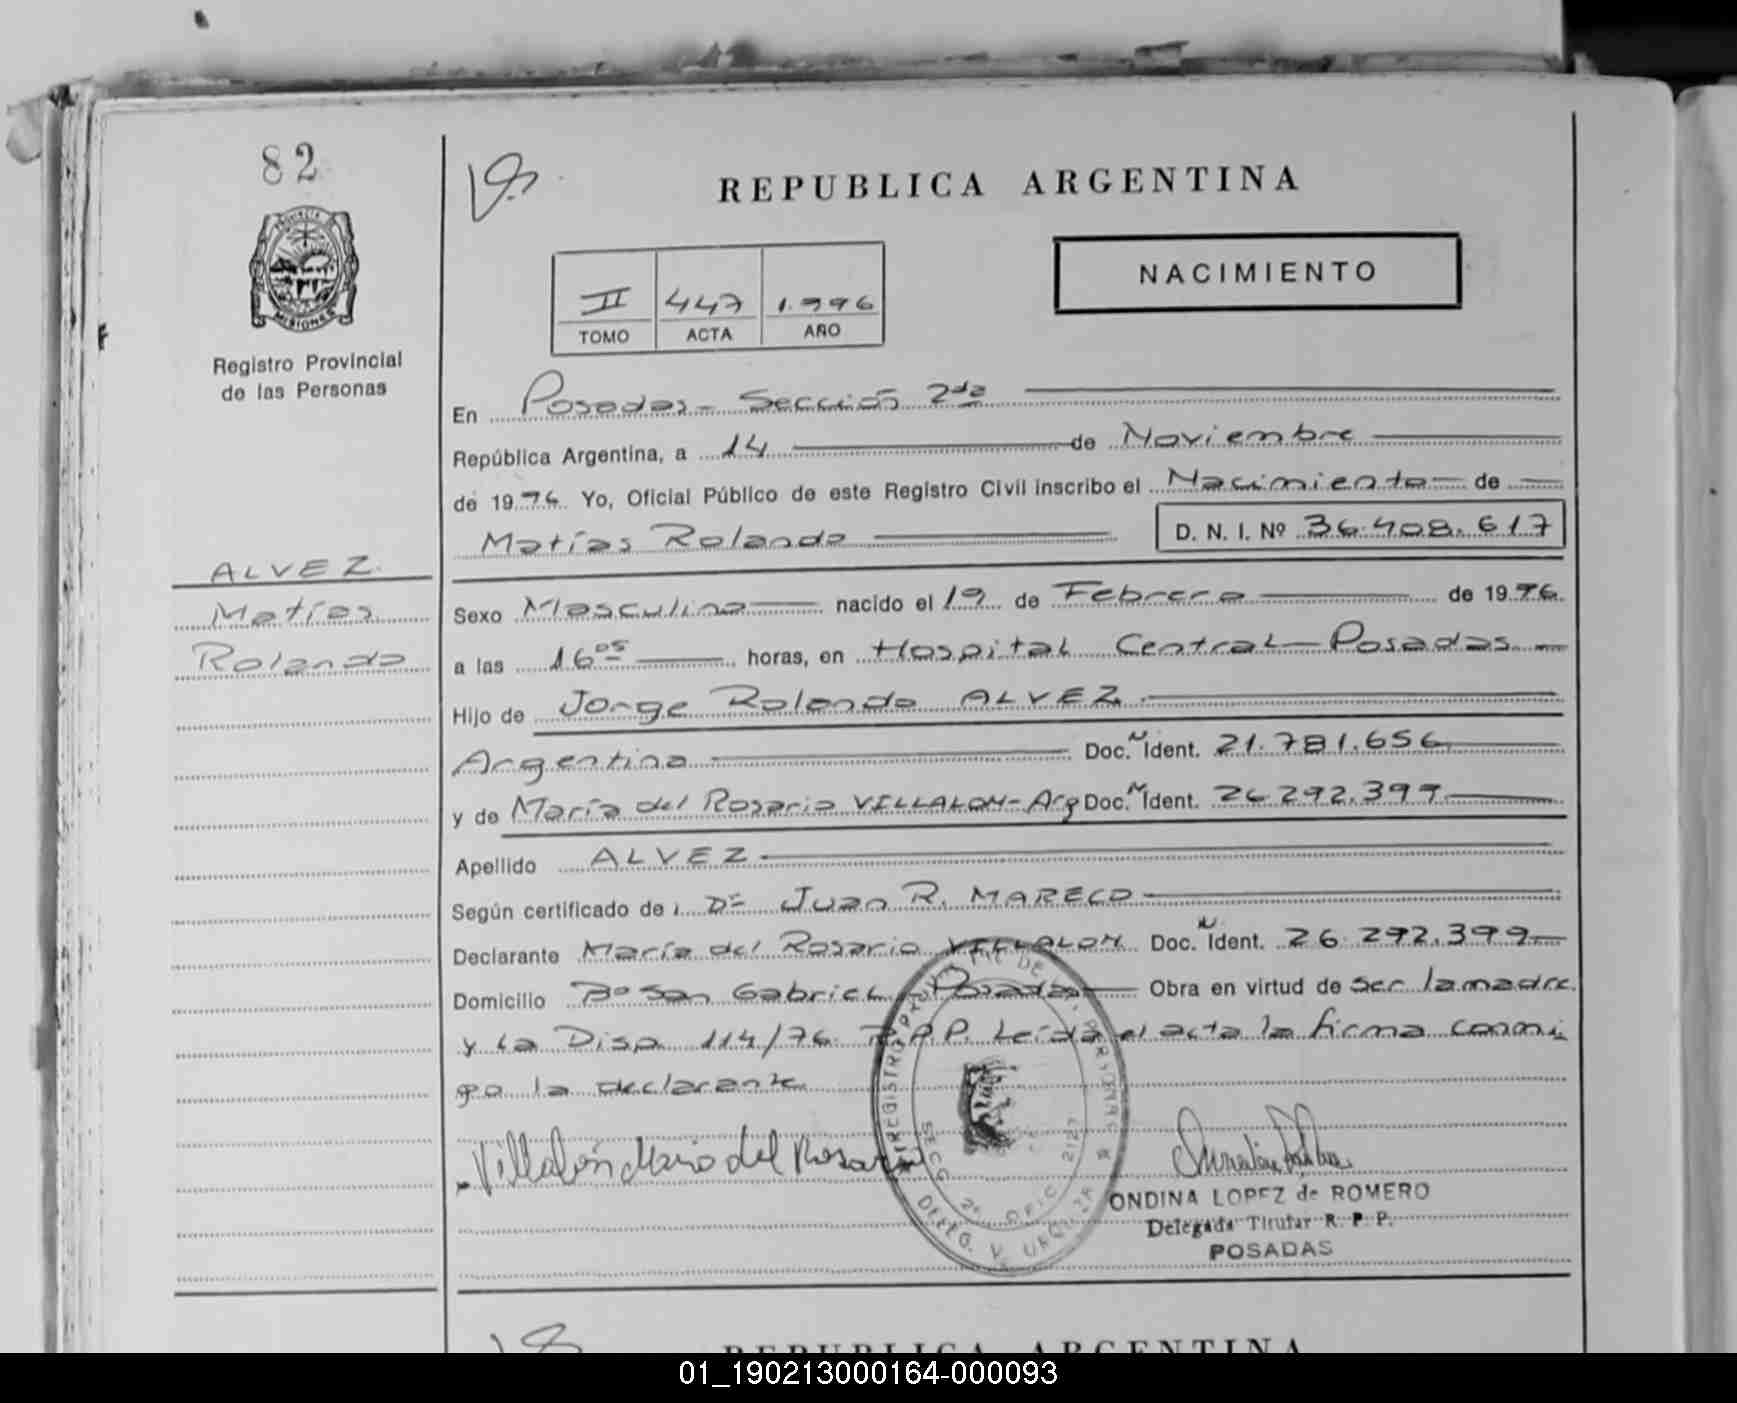 82
REPUBLICA ARGENTINA
NACIMIENTO
II 447 1.996
TOMO ACTA AÑO
PROVINCIA
MISIONES
Registro Provincial
de las Personas
En Posadas - Sección 2da
República Argentina, a 14 de Noviembre
de 1996 Yo, Oficial Público de este Registro Civil inscribo el Nacimiento de
Matías Rolando D. N. I. Nº 36.408.617
ALVEZ.
Matías
Rolando
Sexo Masculino nacido el 19 de Febrero de 1996
a las 16 05 horas, en Hospital Central - Posadas
Hijo de Jorge Rolando ALVEZ
Argentino Doc. N Ident. 21.781.656
y de María del Rosario VILLALON - Arg Doc. N Ident. 26292.399
Apellido ALVEZ
Según certificado de Dr Juan R. MARECO
Declarante María del Rosario VILLALON Doc. N Ident. 26.292.399
Domicilio Bº San Gabriel - Posadas Obra en virtud de ser la madre
y la Disp. 114/96 R.P.P. Leída el acta la firma conmi
go la declarante
Villalón Maria del Rosario
REGISTRO DE LAS PERSONAS
SECC 2ª OFIC 2127
DELEG. V. URQUIZA
ONDINA LOPEZ de ROMERO
Delegada Titular R. P. P.
POSADAS
REPUBLICA ARGENTINA
01_190213000164-000093